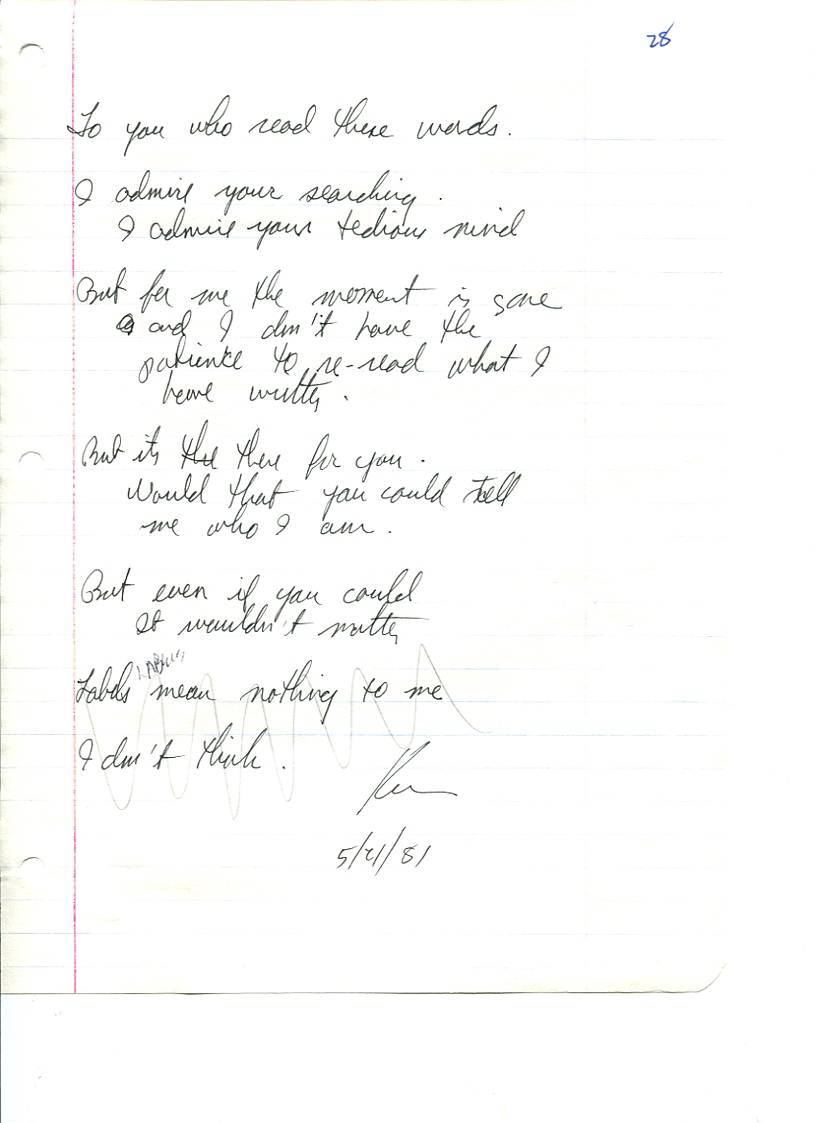 28
To you who read these words.
I admire your searching.
I admire your tedious mind
But for me the moment is gone
and I don't have the
patience to re-read what I
have written.
But its there for you.
Would that you could tell
me who I am.
But even if you could
It wouldn't matter
LABELS
Labels mean nothing to me
I don't think.
Ken
5/21/81